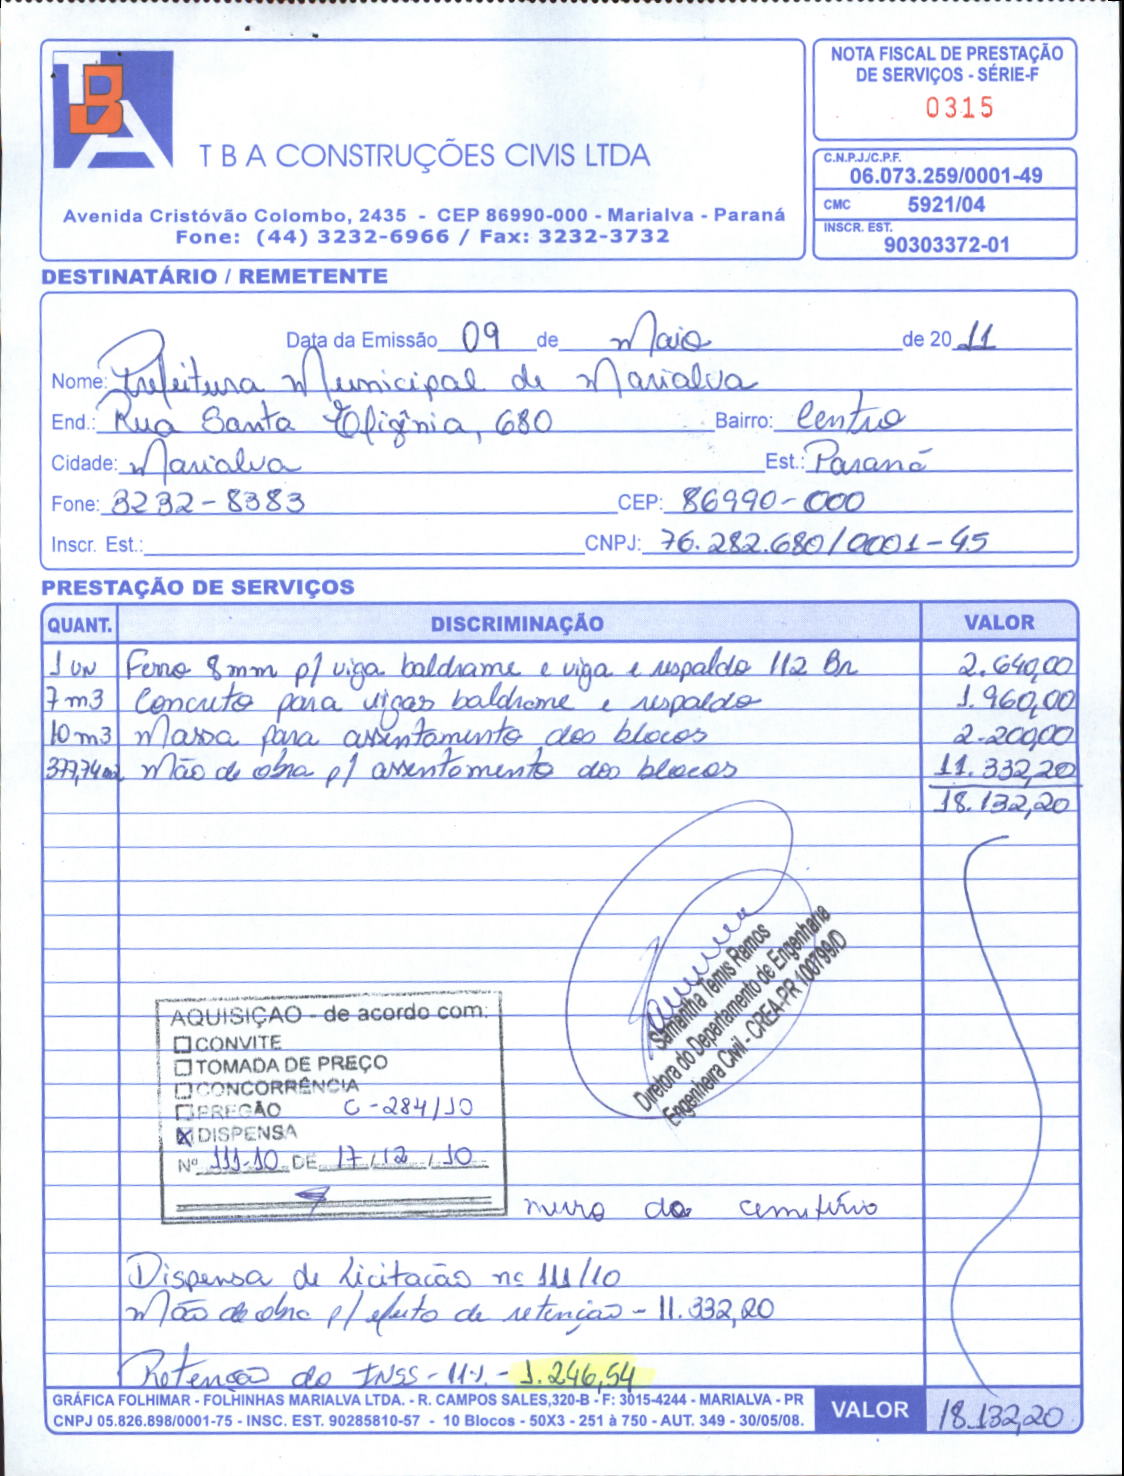 TBA
NOTA FISCAL DE PRESTAÇÃO
DE SERVIÇOS - SÉRIE-F
0315
T B A CONSTRUÇÕES CIVIS LTDA
C.N.P.J./C.P.F.
06.073.259/0001-49
CMC 5921/04
INSCR. EST.
90303372-01
Avenida Cristóvão Colombo, 2435 - CEP 86990-000 - Marialva - Paraná
Fone: (44) 3232-6966 / Fax: 3232-3732
DESTINATÁRIO / REMETENTE
Data da Emissão 09 de Maio de 2011
Nome: Prefeitura Municipal de Marialva
End.: Rua Santa Efigênia, 680 Bairro: Centro
Cidade: Marialva Est.: Paraná
Fone: 3232-8383 CEP: 86990-000
Inscr. Est.: CNPJ: 76.282.680/0001-45
PRESTAÇÃO DE SERVIÇOS
QUANT. DISCRIMINAÇÃO VALOR
1 UN Ferro 8mm p/ viga baldrame e viga e respaldo 112 Br 2.640,00
7 m3 Concreto para vigas baldrame e respaldo 1.960,00
10 m3 Massa para assentamento dos blocos 2.200,00
377,74 m2 Mão de obra p/ assentamento dos blocos 11.332,20
18.132,20
Samantha Temis Ramos
Diretora do Departamento de Engenharia
Engenheira Civil - CREA-PR 100799/D
AQUISIÇÃO - de acordo com:
CONVITE
TOMADA DE PREÇO
CONCORRÊNCIA
PREGÃO C-284/10
X DISPENSA
Nº 111-10 DE 17/12/10
muro do cemitério
Dispensa de Licitação nº 111/10
Mão de obra p/ efeito de retenção - 11.332,20
Retenção do INSS - 11% - 1.246,54
GRÁFICA FOLHIMAR - FOLHINHAS MARIALVA LTDA. - R. CAMPOS SALES,320-B - F: 3015-4244 - MARIALVA - PR
CNPJ 05.826.898/0001-75 - INSC. EST. 90285810-57 - 10 Blocos - 50X3 - 251 à 750 - AUT. 349 - 30/05/08.
VALOR 18.132,20